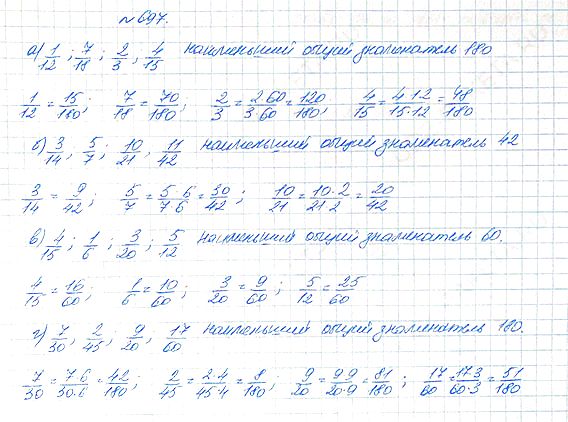 №697.
а) 1/12; 7/18; 2/3, 4/15 наименьший общий знаменатель 180
1/12 = 15/180; 7/18 = 70/180; 2/3 = 2·60/3·60 = 120/180; 4/15 = 4·12/15·12 = 48/180
б) 3/14, 5/7; 10/21, 11/42 наименьший общий знаменатель 42
3/14 = 9/42; 5/7 = 5·6/7·6 = 30/42; 10/21 = 10·2/21·2 = 20/42
в) 4/15; 1/6; 3/20, 5/12 наименьший общий знаменатель 60.
4/15 = 16/60; 1/6 = 10/60; 3/20 = 9/60; 5/12 = 25/60
г) 7/30, 2/45; 9/20, 17/60 наименьший общий знаменатель 180.
7/30 = 7·6/30·6 = 42/180; 2/45 = 2·4/45·4 = 8/180; 9/20 = 9·9/20·9 = 81/180; 17/60 = 17·3/60·3 = 51/180